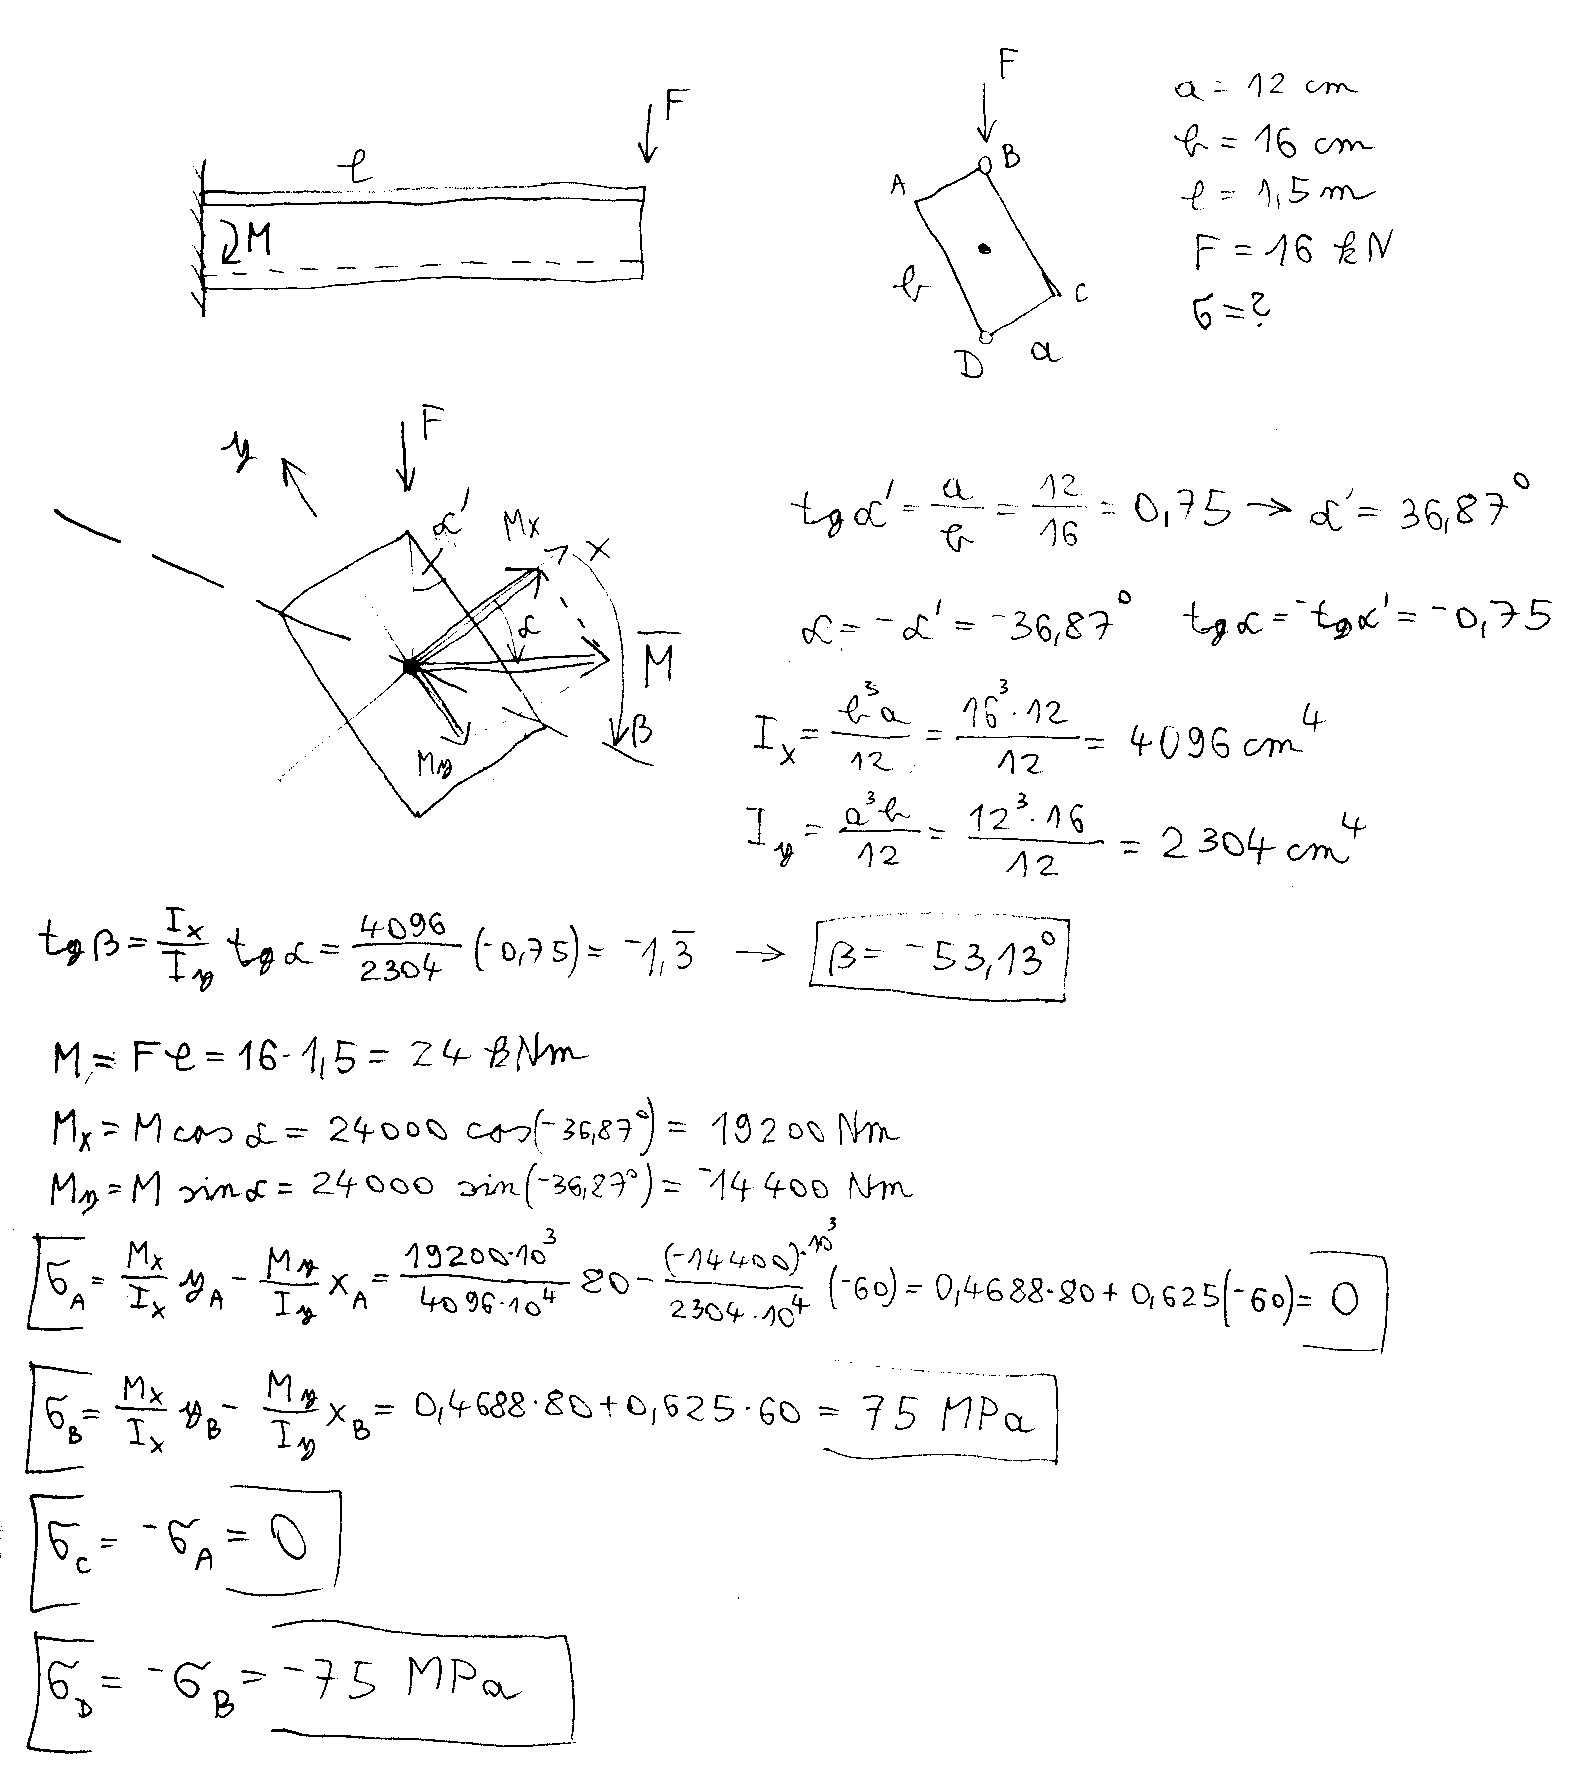 F
l
M
F
A
B
b
C
D
a
a = 12 cm
b = 16 cm
l = 1,5 m
F = 16 kN
σ = ?
F
y
α'
Mx
x
α
M̅
My
β
tgα' = a/b = 12/16 = 0,75 → α' = 36,87°
α = -α' = -36,87° tgα = -tgα' = -0,75
Ix = b³a/12 = 16³·12/12 = 4096 cm⁴
Iy = a³b/12 = 12³·16/12 = 2304 cm⁴
tgβ = Ix/Iy tgα = 4096/2304 (-0,75) = -1,3̅ → β = -53,13°
M = Fl = 16·1,5 = 24 kNm
Mx = M cos α = 24000 cos(-36,87°) = 19200 Nm
My = M sin α = 24000 sin(-36,87°) = -14400 Nm
σA = Mx/Ix yA - My/Iy xA = 19200·10³/4096·10⁴ 80 - (-14400)·10³/2304·10⁴ (-60) = 0,4688·80 + 0,625(-60) = 0
σB = Mx/Ix yB - My/Iy xB = 0,4688·80 + 0,625·60 = 75 MPa
σC = -σA = 0
σD = -σB = -75 MPa